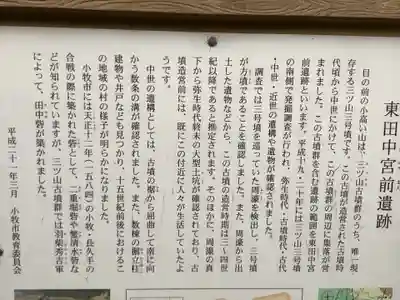 東田中宮前遺跡
目の前の小高い山は、三ツ山古墳群のうち、唯一現
存する三ツ山三号墳です。この古墳が造営された古墳時
代頃から中世にかけて、この古墳群の周辺に集落が営
まれました。この古墳群を含む遺跡の範囲を東田中宮
前遺跡といいます。平成十九・二十年には三ツ山三号墳
の南側で発掘調査が行われ、弥生時代・古墳時代・古代
・中世・近世の遺構や遺物が確認されました。
調査では三号墳を巡っていた周濠を検出し、三号墳
が方墳であることを確認しました。また、周濠から出
土した遺物などから、この古墳の造営時期は三〜四世
紀以降であると推定されます。そのほかに、周濠の真
下から弥生時代終末の大型土坑が確認されており、古
墳造営以前には、既にこの付近に人々が生活していたよ
うです。
中世の遺構としては、古墳の裾から屈曲して南に向
かう数条の溝が確認されました。また、数棟の掘立柱
建物や井戸なども見つかり、十五世紀前後におけるこ
の地域の村の様子が明らかになりました。
小牧市には天正十二年（一五八四）の小牧・長久手の
合戦の際に築かれた砦として、二重堀砦や蟹清水砦な
どが知られていますが、三ツ山古墳群では羽柴秀吉軍
によって、田中砦が築かれました。
平成二十一年三月　小牧市教育委員会